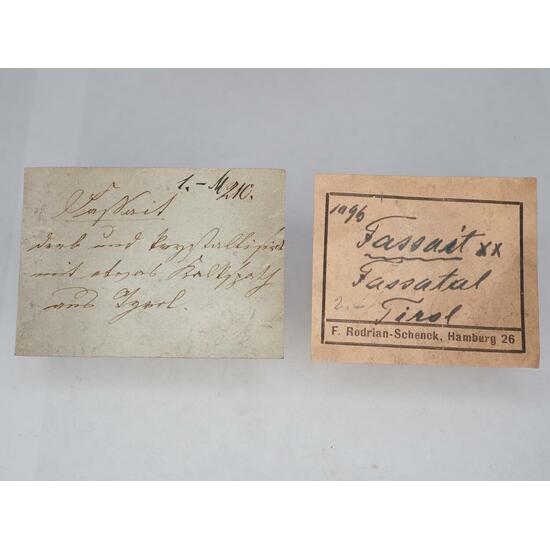 1.- M 210.
Fassait
derb und krystallisirt
mit etwas Kalkspath
aus Tyrol.
1096
Fassait xx
Fassatal
2.- Tirol
F. Rodrian-Schenck, Hamburg 26